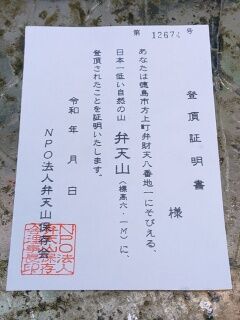 第 12674 号
登頂証明書
様
あなたは徳島市方上町弁財天八番地一にそびえる、
日本一低い自然の山 弁天山（標高六・一M）に、
登頂されたことを証明いたします。
令和 年 月 日
NPO法人弁天山保存会